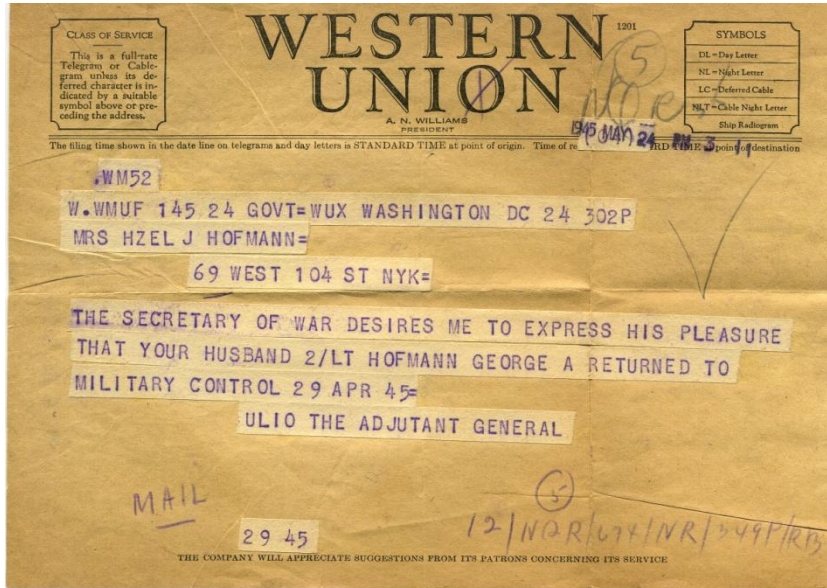 CLASS OF SERVICE
This is a full-rate
Telegram or Cable-
gram unless its de-
ferred character is in-
dicated by a suitable
symbol above or pre-
ceding the address.
WESTERN
UNION
A. N. WILLIAMS
PRESIDENT
1201
5
SYMBOLS
DL=Day Letter
NL=Night Letter
LC=Deferred Cable
NLT=Cable Night Letter
Ship Radiogram
1945 MAY 24 PM 3 11
The filing time shown in the date line on telegrams and day letters is STANDARD TIME at point of origin. Time of TIME at point of destination
.WM52
W.WMUF 145 24 GOVT=WUX WASHINGTON DC 24 302P
MRS HZEL J HOFMANN=
69 WEST 104 ST NYK=
THE SECRETARY OF WAR DESIRES ME TO EXPRESS HIS PLEASURE
THAT YOUR HUSBAND 2/LT HOFMANN GEORGE A RETURNED TO
MILITARY CONTROL 29 APR 45=
ULIO THE ADJUTANT GENERAL
MAIL
5
29 45
12/NQR/674/NR/349P/RB
THE COMPANY WILL APPRECIATE SUGGESTIONS FROM ITS PATRONS CONCERNING ITS SERVICE